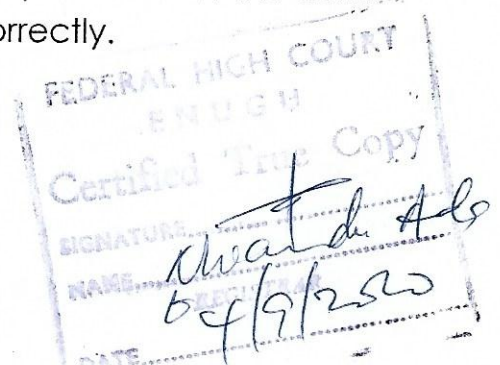 orrectly.
FEDERAL HIGH COURT
ENUGU
Certified True Copy
SIGNATURE
NAME
REGISTRAR
04/9/2020
DATE